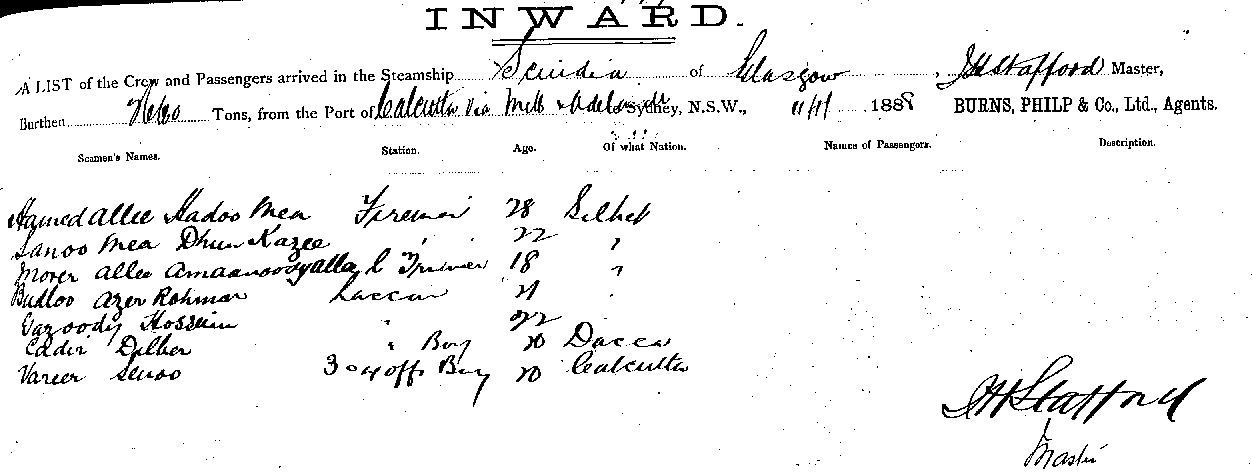 INWARD.
A LIST of the Crew and Passengers arrived in the Steamship Scindia of Glasgow, J H Stafford Master,
Burthen Tons, from the Port of Calcutta via Melb & Adelaide Sydney, N.S.W., 188 BURNS, PHILP & Co., Ltd., Agents.
Seamen's Names. Station. Age. Of what Nation. Names of Passengers. Description.
Hamed Allee Hadoo Mea Fireman 28 Silhet
Sanoo Mea Dhun Kazee " 22 "
Morer Allee 18 "
Budloo Azer Rohmar Lascar 21 "
Hossein " 22
Eddir Dilber " Boy 20 Dacca
Vareer Senoo 3 & 4 off Boy 20 Calcutta
J H Stafford
Master